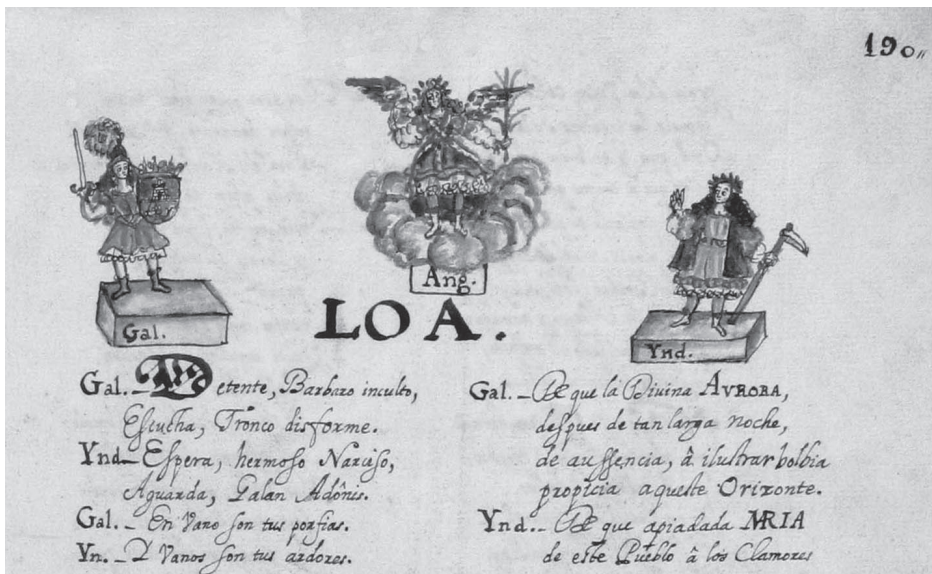 190,,
Ang.
Gal.
Ynd.
LOA.
Gal. – Detente, Barbaro inculto,
Escucha, Tronco disforme.
Ynd – Espera, hermoso Narciso,
Aguarda, Galan Adônis.
Gal. – En Vano son tus porfias.
Yn. – Y Vanos son tus ardores.
Gal. – De que la Divina AVRORA,
despues de tan larga noche,
de aussencia, â ilustrar bolbia
propicia aqueste Orizonte.
Ynd. – De que apiadada MRIA
de este Pueblo â los Clamores